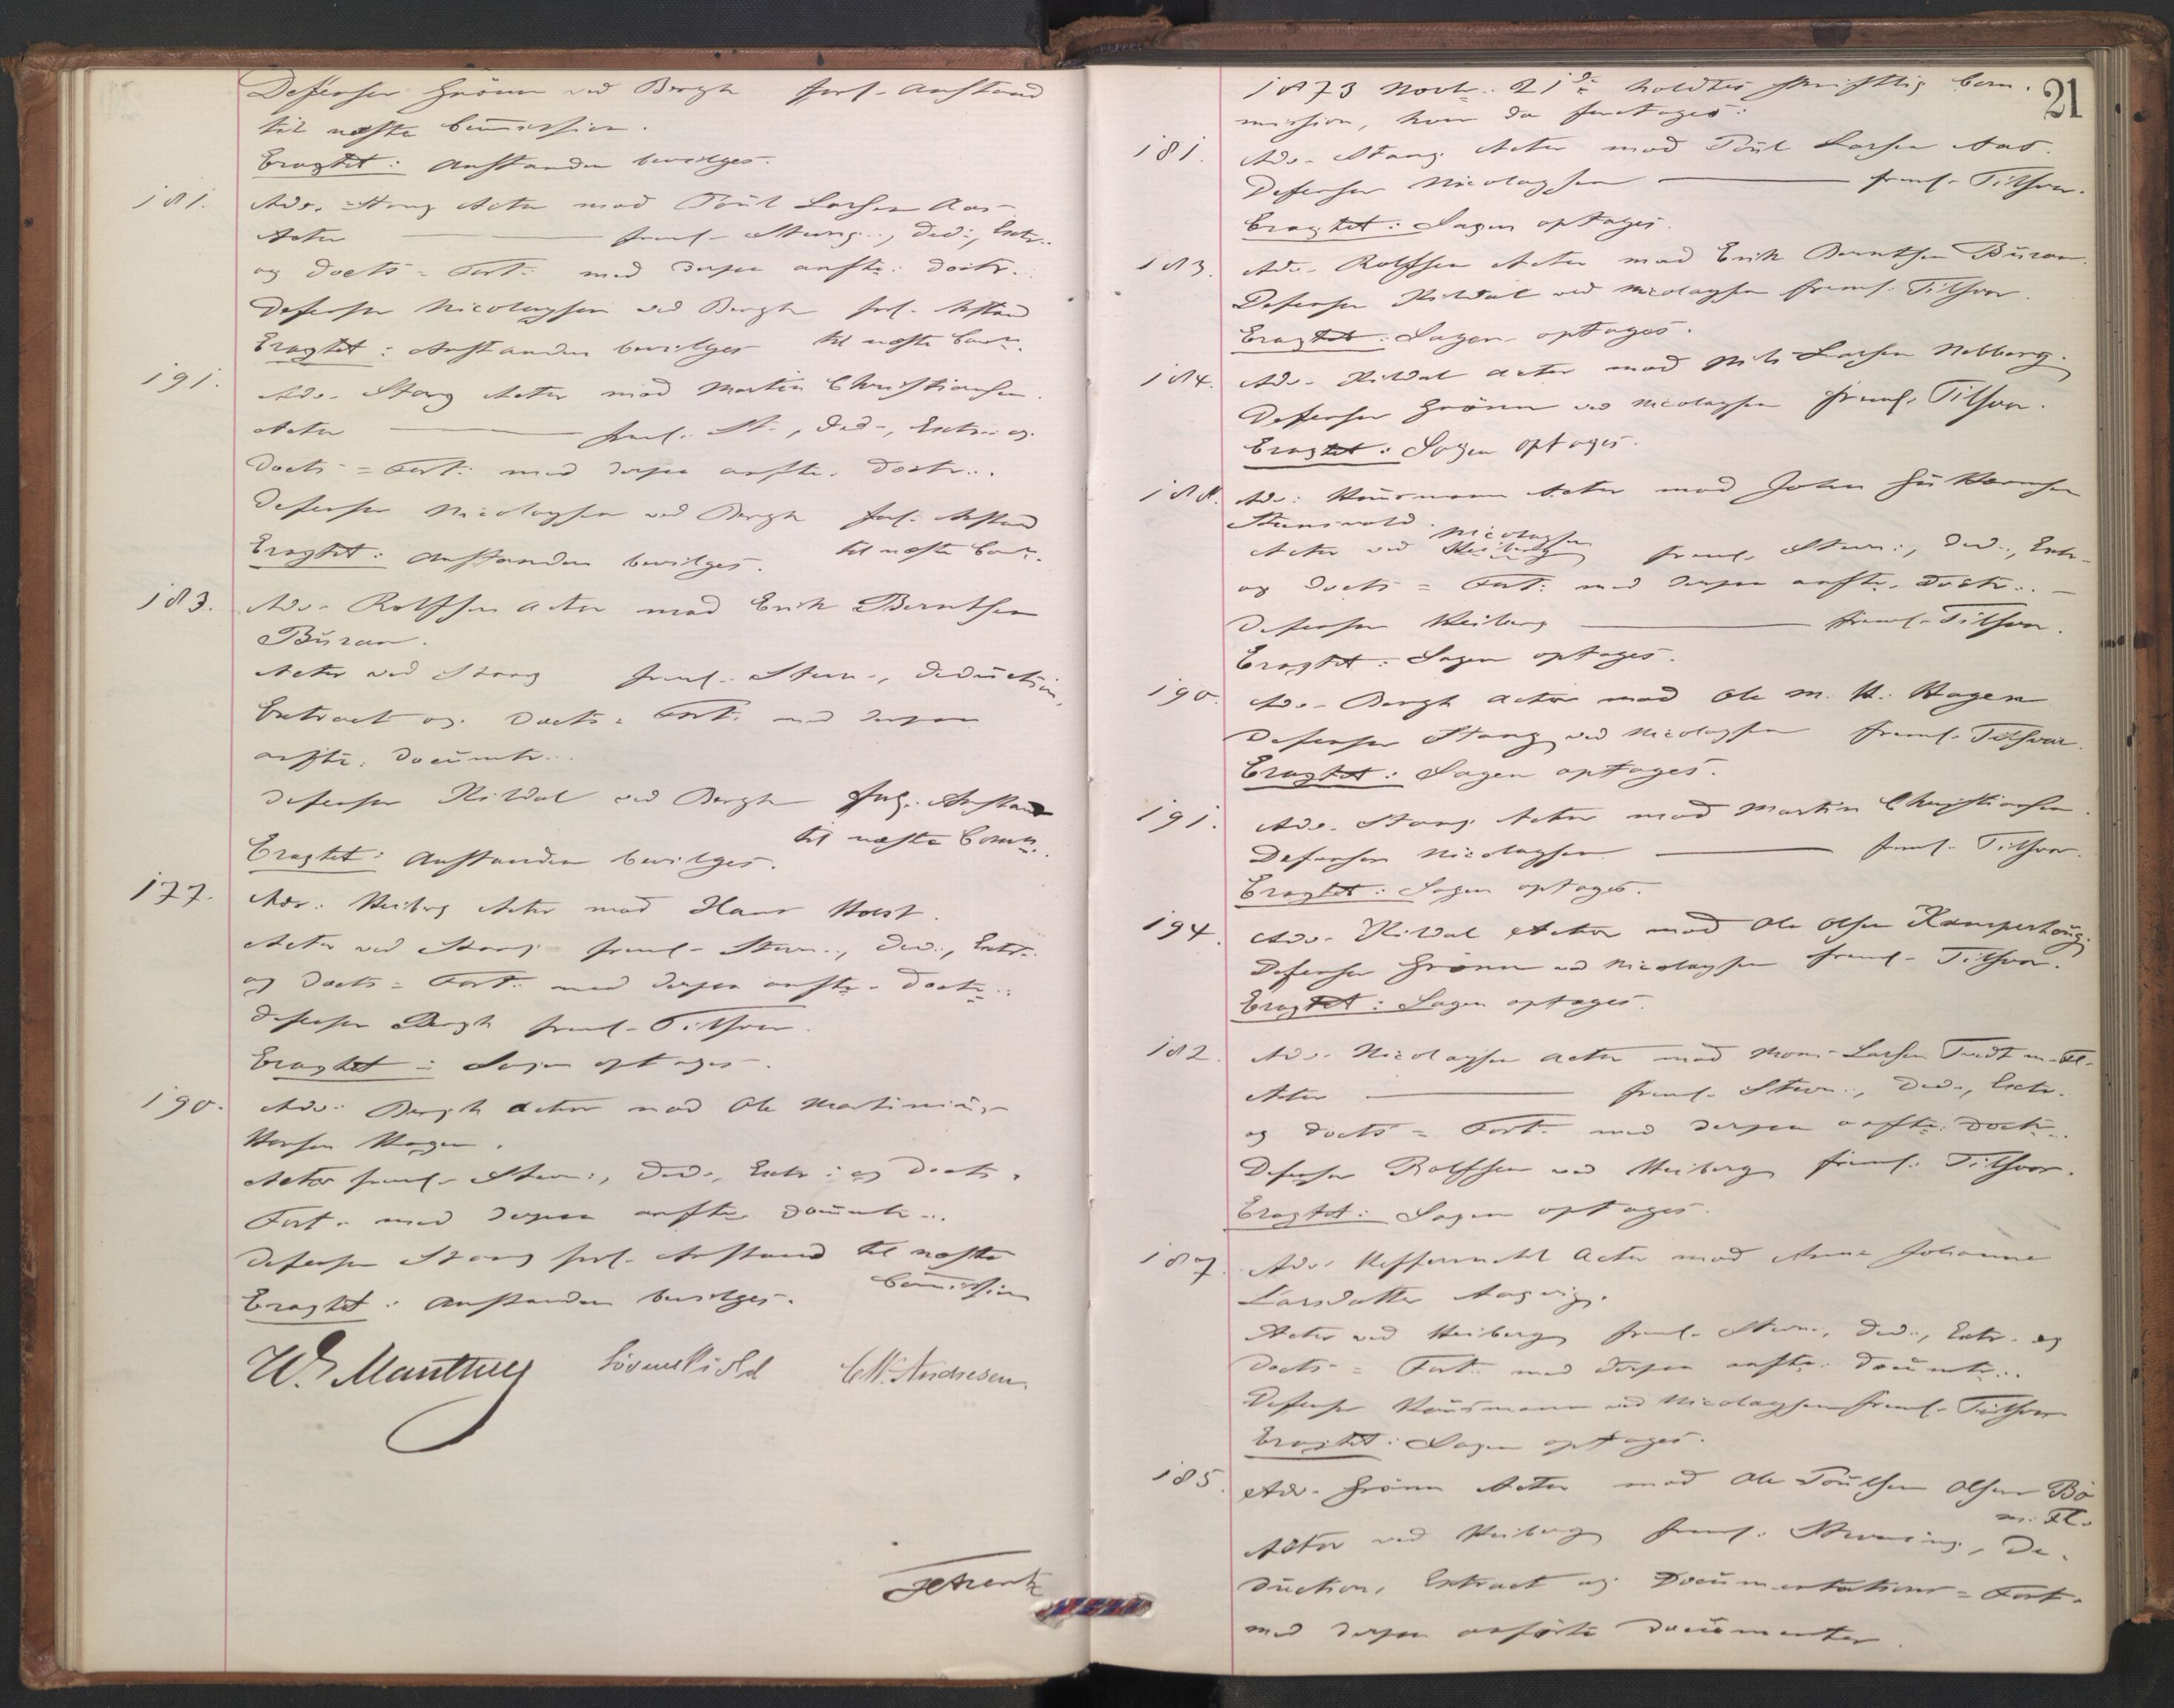 Defensor Grönn ved Bergh forl. Anstand
til næste Commission.
Eragtet: Anstanden bevilges.
181. Adv. Stang Actor mod Poul Larsen Aas
Actor — freml. Stevng., Ded., Extr.
og Docts = Fort. med derpaa anfte. Doctr.
Defensor Nicolaysen ved Bergh forl. Anstand
til næste Comn.
Eragtet: Anstanden bevilges
191. Adv. Stang Actor mod Martin Christiansen.
Actor — freml. St., Ded., Extr. og
Docts = Fort. med derpaa anfte. Doctr.
Defensor Nicolaysen ved Bergh forl. Anstand
til næste Comn.
Eragtet: Anstanden bevilges.
183. Adv. Rolfsen Actor mod Erik Berntsen
Buran.
Actor ved Stang freml. Stevn., Deduction,
Extract og Docts = Fort. med derpaa
anfte. Documtr.
Defensor Kildal ved Bergh forl. Anstand
til næste Comn.
Eragtet: Anstanden bevilges.
177. Adv. Heiberg Actor mod Hans Holst.
Actor ved Stang freml. Stevn., Ded., Extr.
og Docts = Fort. med derpaa anfte. Doctr.
Defensor Bergh freml. Tilsvar.
Eragtet: Sagen optages.
190. Adv. Bergh Actor mod Ole Martinius
Hansen Hagen.
Actor freml. Stevn., Ded., Extr. og Docts =
Fort. med derpaa anfte Documtr.
Defensor Stang forl. Anstand til næste
Commission
Eragtet: Anstanden bevilges.
W. Manthey Lövenskiold C.M. Andresen.
21
1873 Novbr. 21de holdtes skriftlig Com-
mission, hvor da foretoges:
181. Adv. Stang Actor mod Poul Larsen Aas.
Defensor Nicolaysen — freml. Tilsvar.
Eragtet: Sagen optages.
183. Adv. Rolfsen Actor mod Erik Berntsen Buran.
Defensor Kildal ved Nicolaysen freml. Tilsvar.
Eragtet: Sagen optages.
184. Adv. Kildal Actor mod Nils Larsen Nobberg.
Defensor Grönn ved Nicolaysen freml. Tilsvar.
Eragtet: Sagen optages.
188. Adv. Hausmann Actor mod John
Nicolaysen
Actor ved Heiberg freml. Stevn., Ded., Extr.
og Docts = Fort. med derpaa anfte. Doctr.
Defensor Heiberg — freml. Tilsvar.
Eragtet: Sagen optages.
190. Adv. Bergh Actor mod Ole M. H. Hagen
Defensor Stang ved Nicolaysen freml. Tilsvar.
Eragtet: Sagen optages.
191. Adv. Stang Actor mod Martin Christiansen.
Defensor Nicolaysen — freml. Tilsvar.
Eragtet: Sagen optages.
194. Adv. Kildal Actor mod Ole Olsen Kamperhaug.
Defensor Grönn ved Nicolaysen freml. Tilsvar.
Eragtet: Sagen optages.
182. Adv. Nicolaysen Actor mod Mons Larsen Tvedt m. Fl.
Actor — freml. Stevn., Ded., Extr.
og Docts = Fort. med derpaa anfte. Doctr.
Defensor Rolfsen ved Heiberg freml. Tilsvar.
Eragtet: Sagen optages.
187. Adv. Hoffermehl Actor mod Anne Johanne
Larsdatter Aagvig.
Actor ved Heiberg freml. Stevn., Ded., Extr. og
Docts = Fort. med derpaa anfte. Documtr.
Defensor Hausmann ved Nicolaysen freml. Tilsvar
Eragtet: Sagen optages.
185. Adv. Grönn Actor mod Ole Poulsen Olsen Bö
m. Fl.
Actor ved Heiberg freml. Stevning, De-
duction, Extract og Documentations = Fort.
med derpaa anförte Documenter.